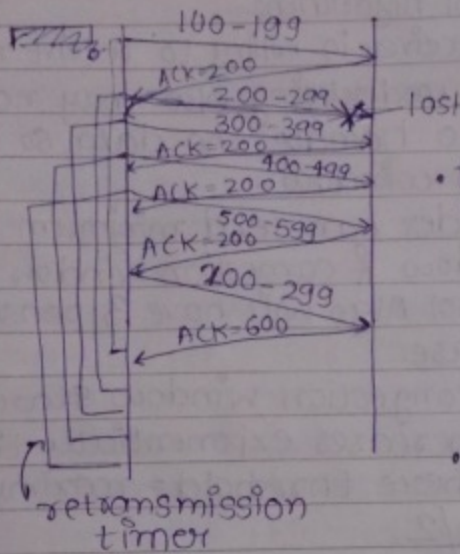 100-199
ACK=200
200-299
lost
300-399
ACK=200
400-499
ACK=200
500-599
ACK=200
200-299
ACK=600
retransmission
timer